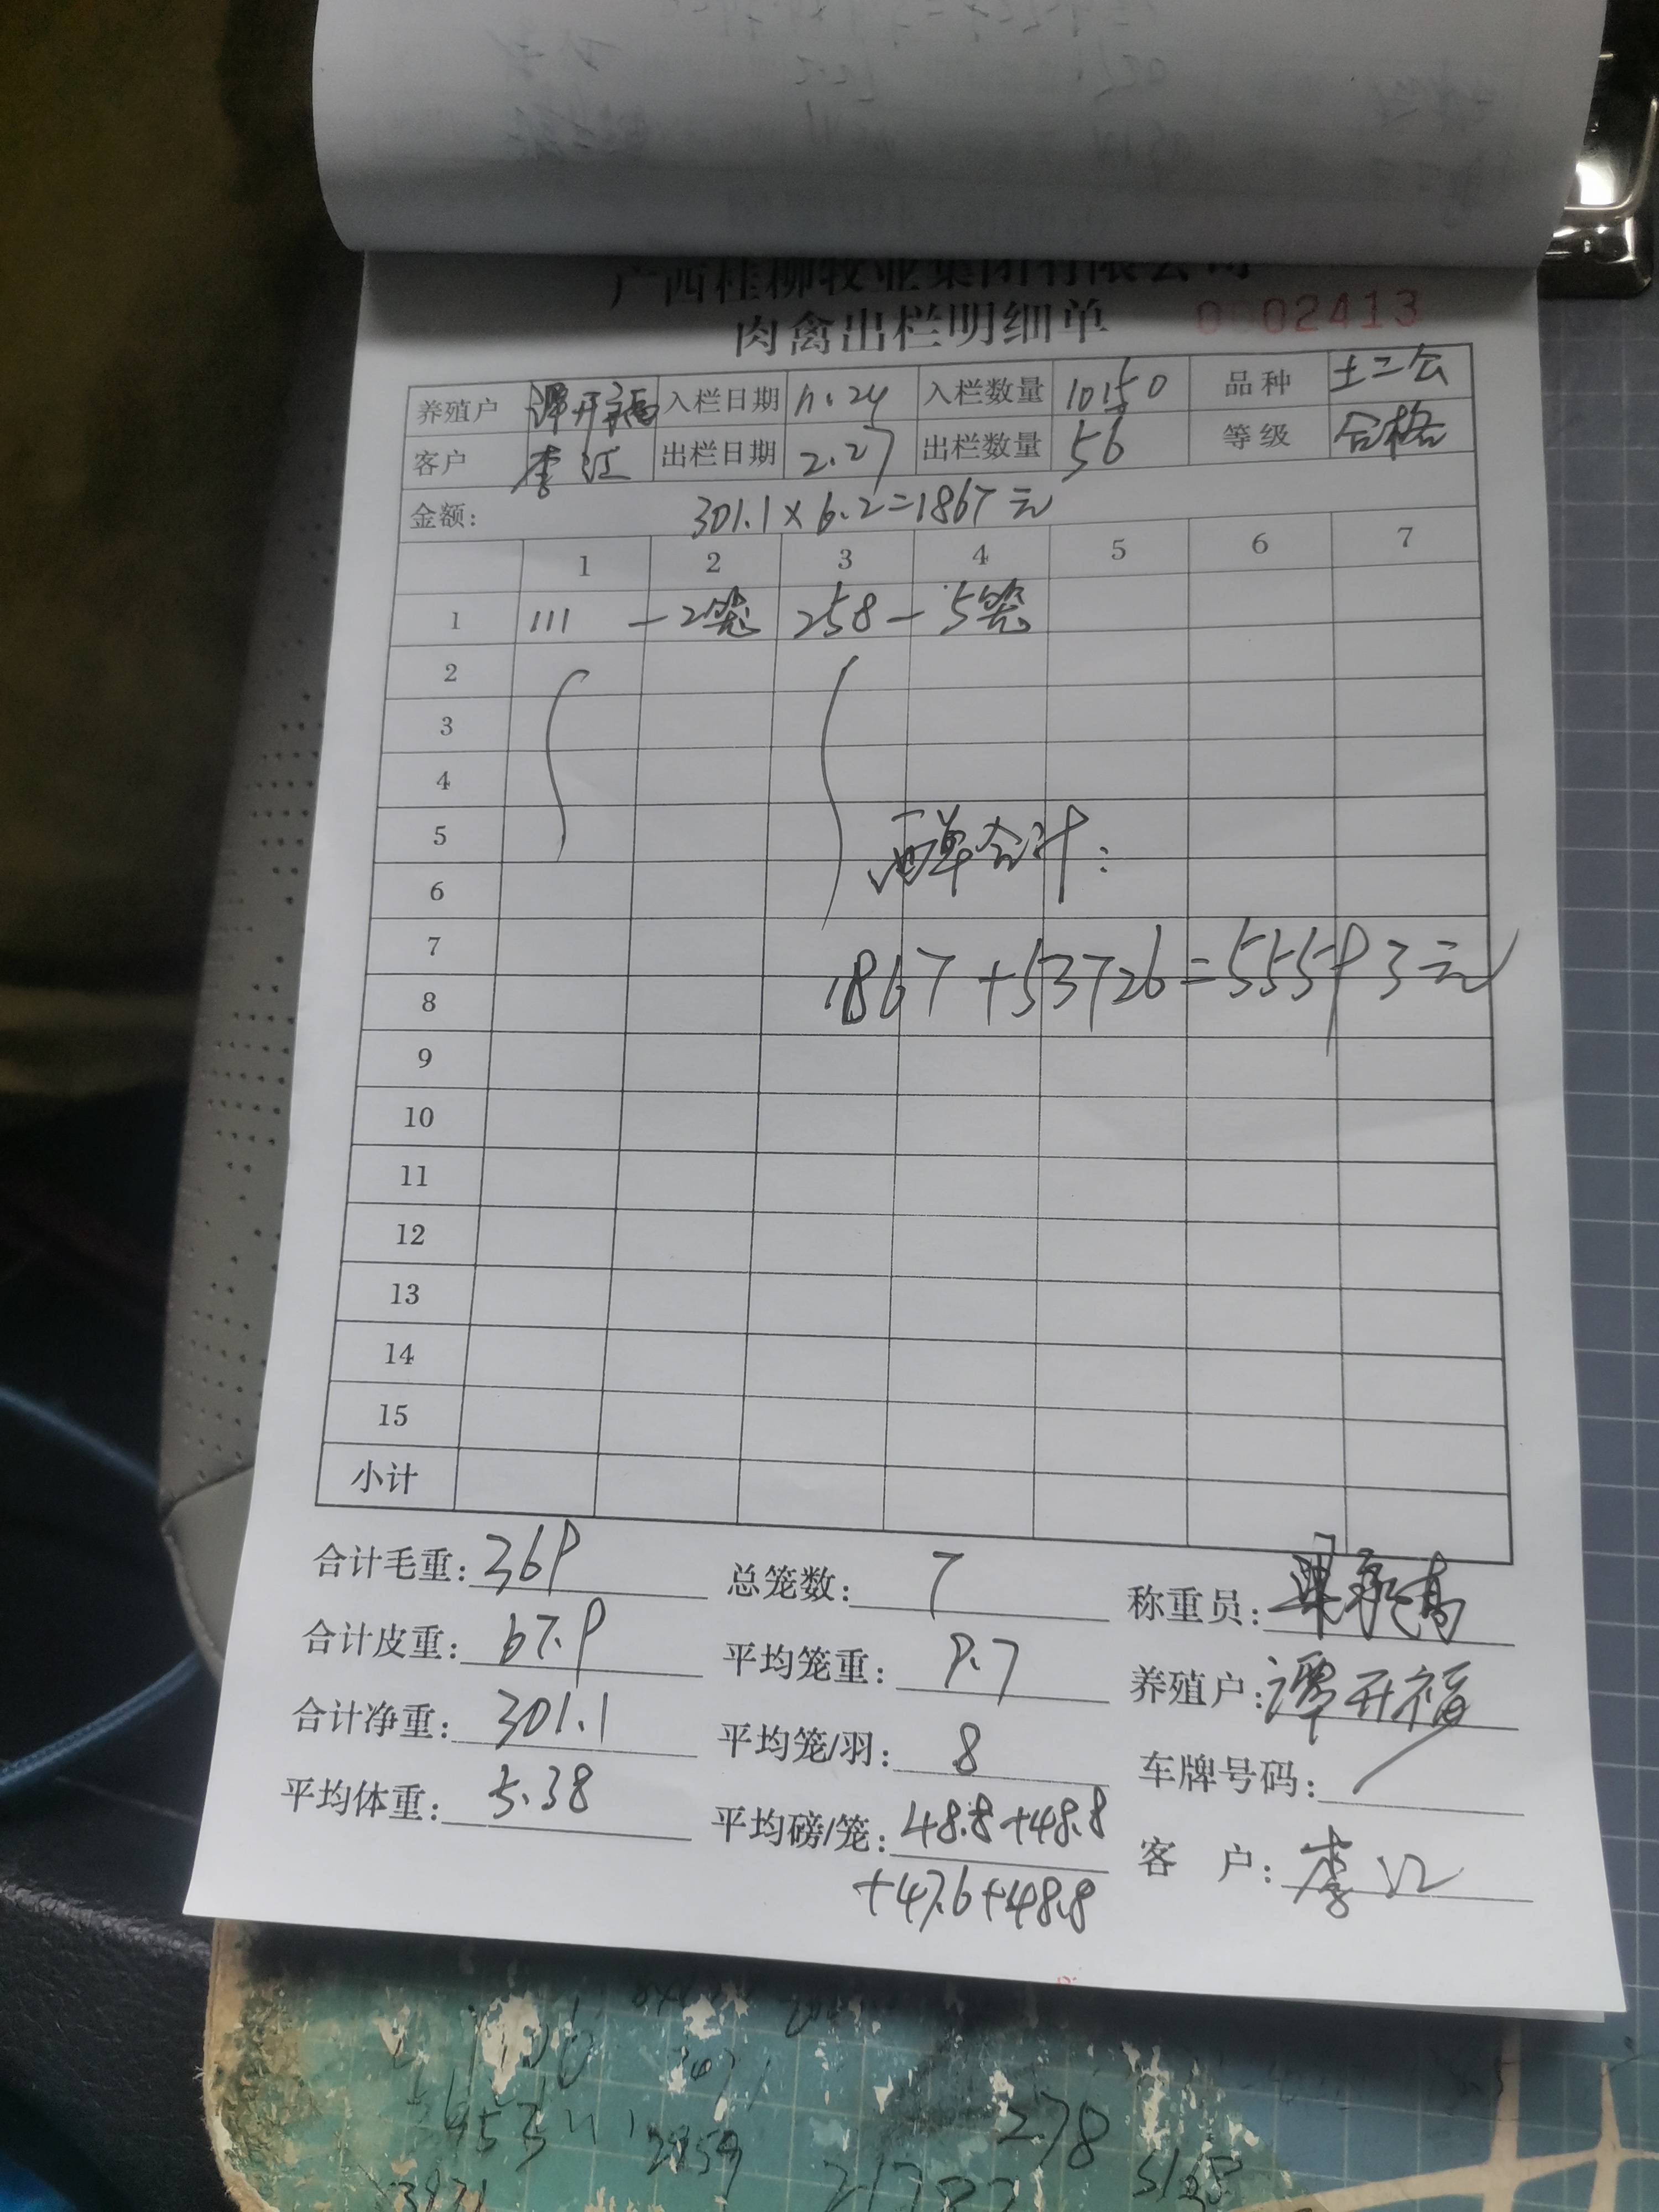 广西桂柳牧业集团有限公司
肉禽出栏明细单 0002413
养殖户 谭开福 入栏日期 11.24 入栏数量 10150 品种 土二公
客户 李江 出栏日期 2.27 出栏数量 56 等级 合格
金额: 301.1×6.2=1867元
1 2 3 4 5 6 7
1 111 —2笼 258— 5笼
2
3
4
5 两单合计:
6
7 1867+53726=55593元
8
9
10
11
12
13
14
15
小计
合计毛重: 369 总笼数: 7 称重员:
合计皮重: 67.9 平均笼重: 9.7 养殖户: 谭开福
合计净重: 301.1 平均笼/羽: 8 车牌号码: /
平均体重: 5.38 平均磅/笼: 48.8+48.8 客 户: 李江
+47.6+48.8
278